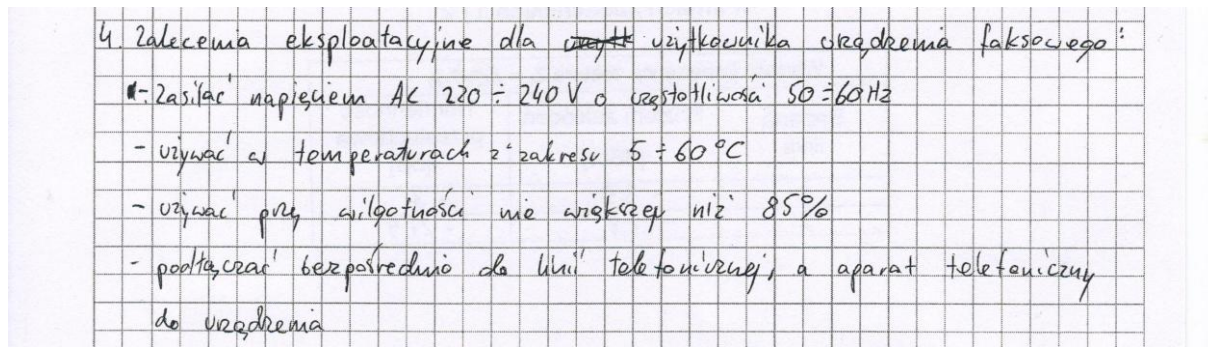 4. Zalecenia eksploatacyjne dla użytkownika urządzenia faksowego:
- Zasilać napięciem AC 220 ÷ 240 V o częstotliwości 50 ÷ 60 Hz
- używać w temperaturach z zakresu 5 ÷ 60 °C
- używać przy wilgotności nie większej niż 85%
- podłączać bezpośrednio do linii telefonicznej, a aparat telefoniczny
do urządzenia